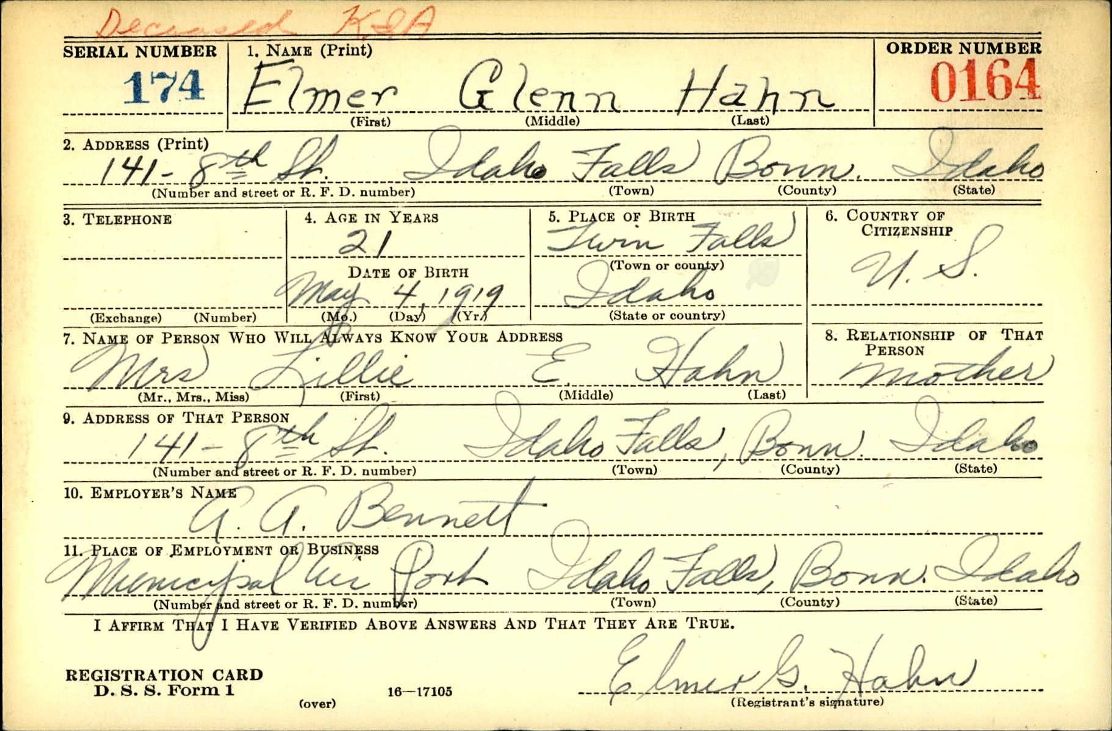 Deceased KIA
SERIAL NUMBER 1. NAME (Print) ORDER NUMBER
174 Elmer Glenn Hahn 0164
(First) (Middle) (Last)
2. ADDRESS (Print)
141- 8th St. Idaho Falls Bonn. Idaho
(Number and street or R. F. D. number) (Town) (County) (State)
3. TELEPHONE 4. AGE IN YEARS 5. PLACE OF BIRTH 6. COUNTRY OF CITIZENSHIP
21 Twin Falls U. S.
DATE OF BIRTH (Town or county)
May 4, 1919 Idaho
(Exchange) (Number) (Mo.) (Day) (Yr.) (State or country)
7. NAME OF PERSON WHO WILL ALWAYS KNOW YOUR ADDRESS 8. RELATIONSHIP OF THAT PERSON
Mrs Lillie E. Hahn Mother
(Mr., Mrs., Miss) (First) (Middle) (Last)
9. ADDRESS OF THAT PERSON
141- 8th St. Idaho Falls, Bonn. Idaho
(Number and street or R. F. D. number) (Town) (County) (State)
10. EMPLOYER'S NAME
A. A. Bennett
11. PLACE OF EMPLOYMENT OR BUSINESS
Municipal Air Port Idaho Falls, Bonn. Idaho
(Number and street or R. F. D. number) (Town) (County) (State)
I AFFIRM THAT I HAVE VERIFIED ABOVE ANSWERS AND THAT THEY ARE TRUE.
REGISTRATION CARD Elmer G. Hahn
D. S. S. Form 1 16—17105 (Registrant's signature)
(over)